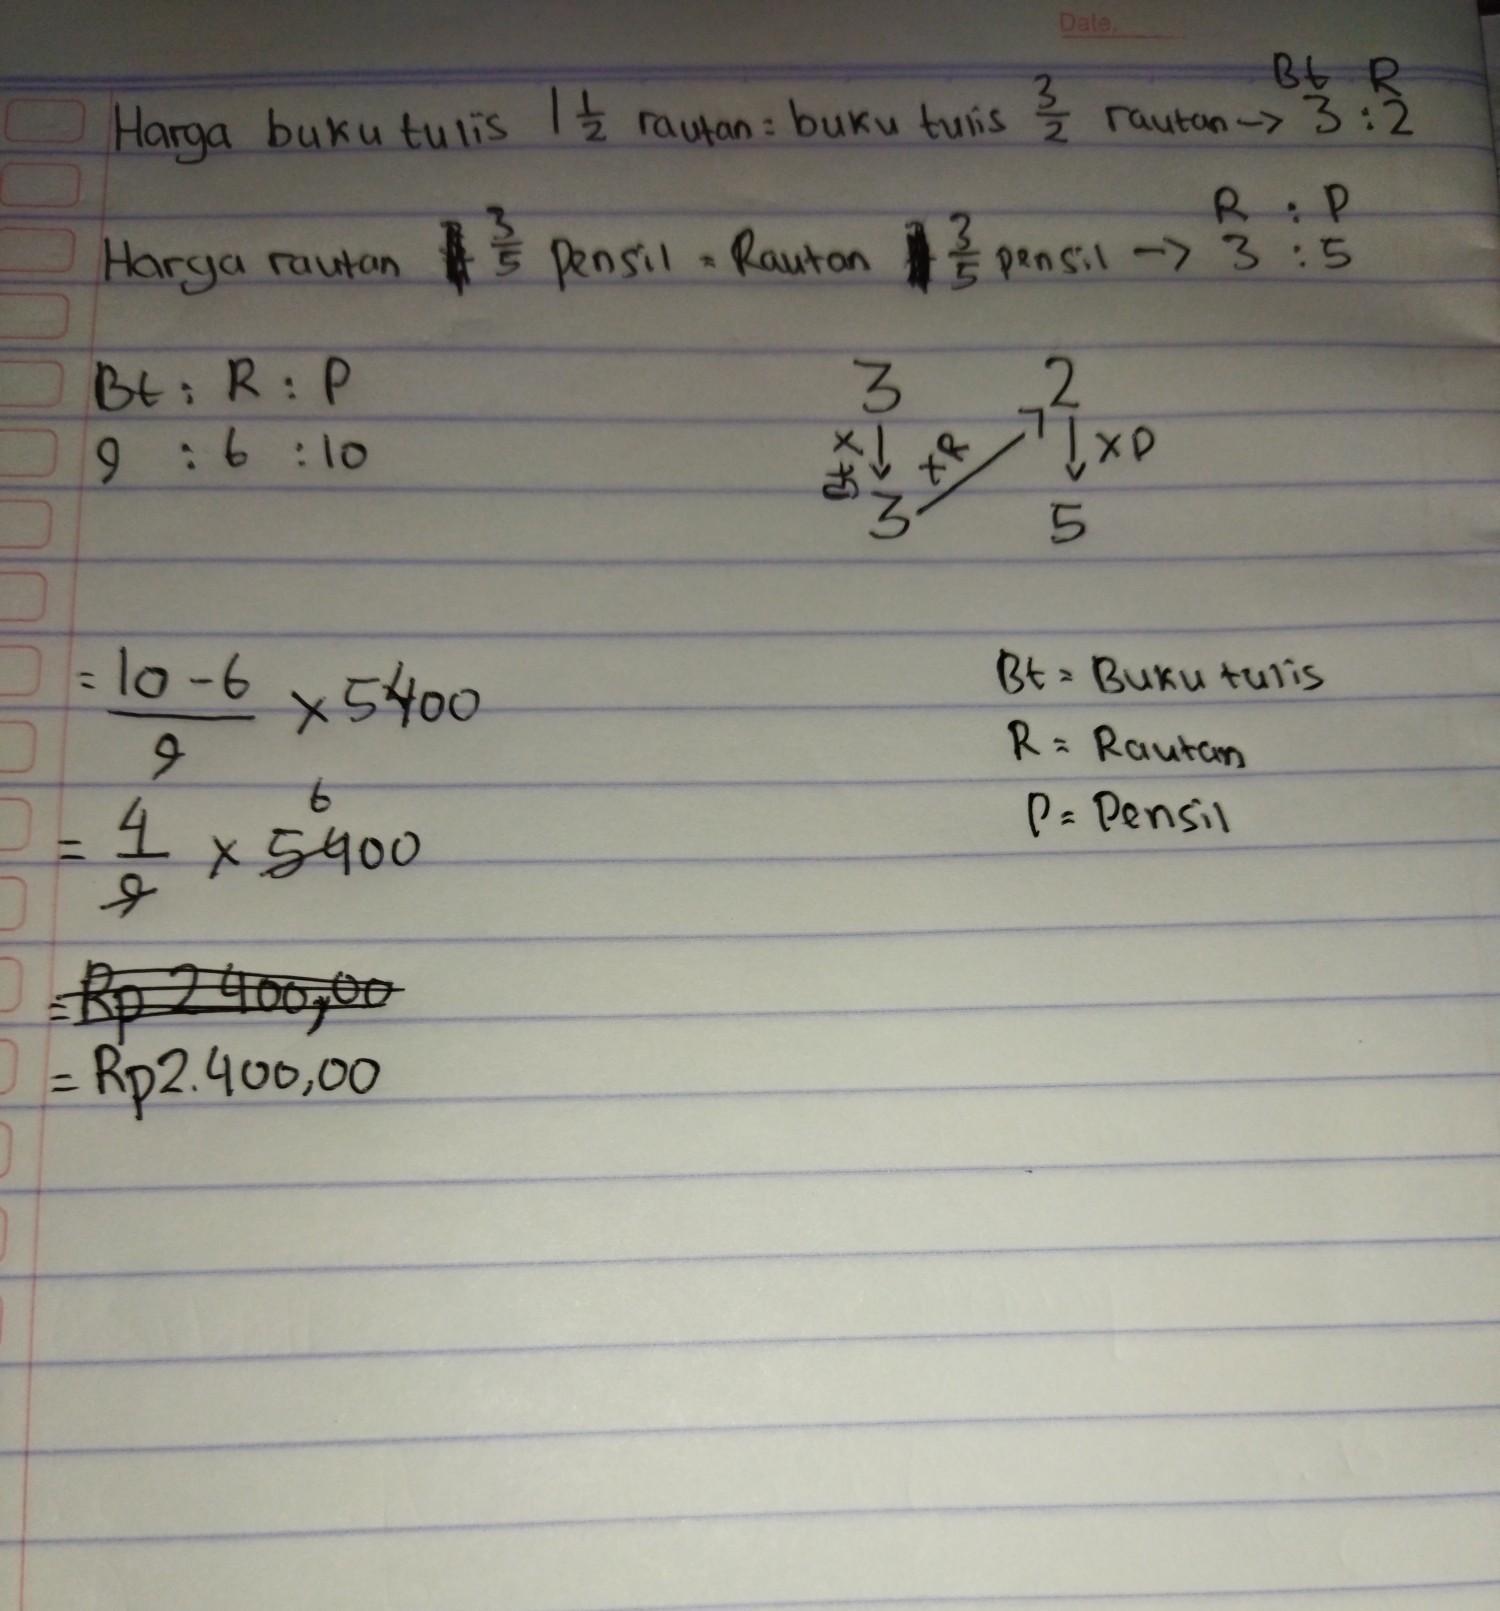 Date.
Bt R
Harga buku tulis 1 1/2 rautan = buku tulis 3/2 rautan -> 3 : 2
R : P
Harga rautan 3/5 pensil = Rautan 3/5 pensil -> 3 : 5
Bt : R : P
9 : 6 : 10
3 2
Bt x xR xP
3 5
= 10 - 6 / 9 x 5400
= 4 / 9 x 5400
6
= Rp 2400,00
= Rp2.400,00
Bt = Buku tulis
R = Rautan
P = Pensil